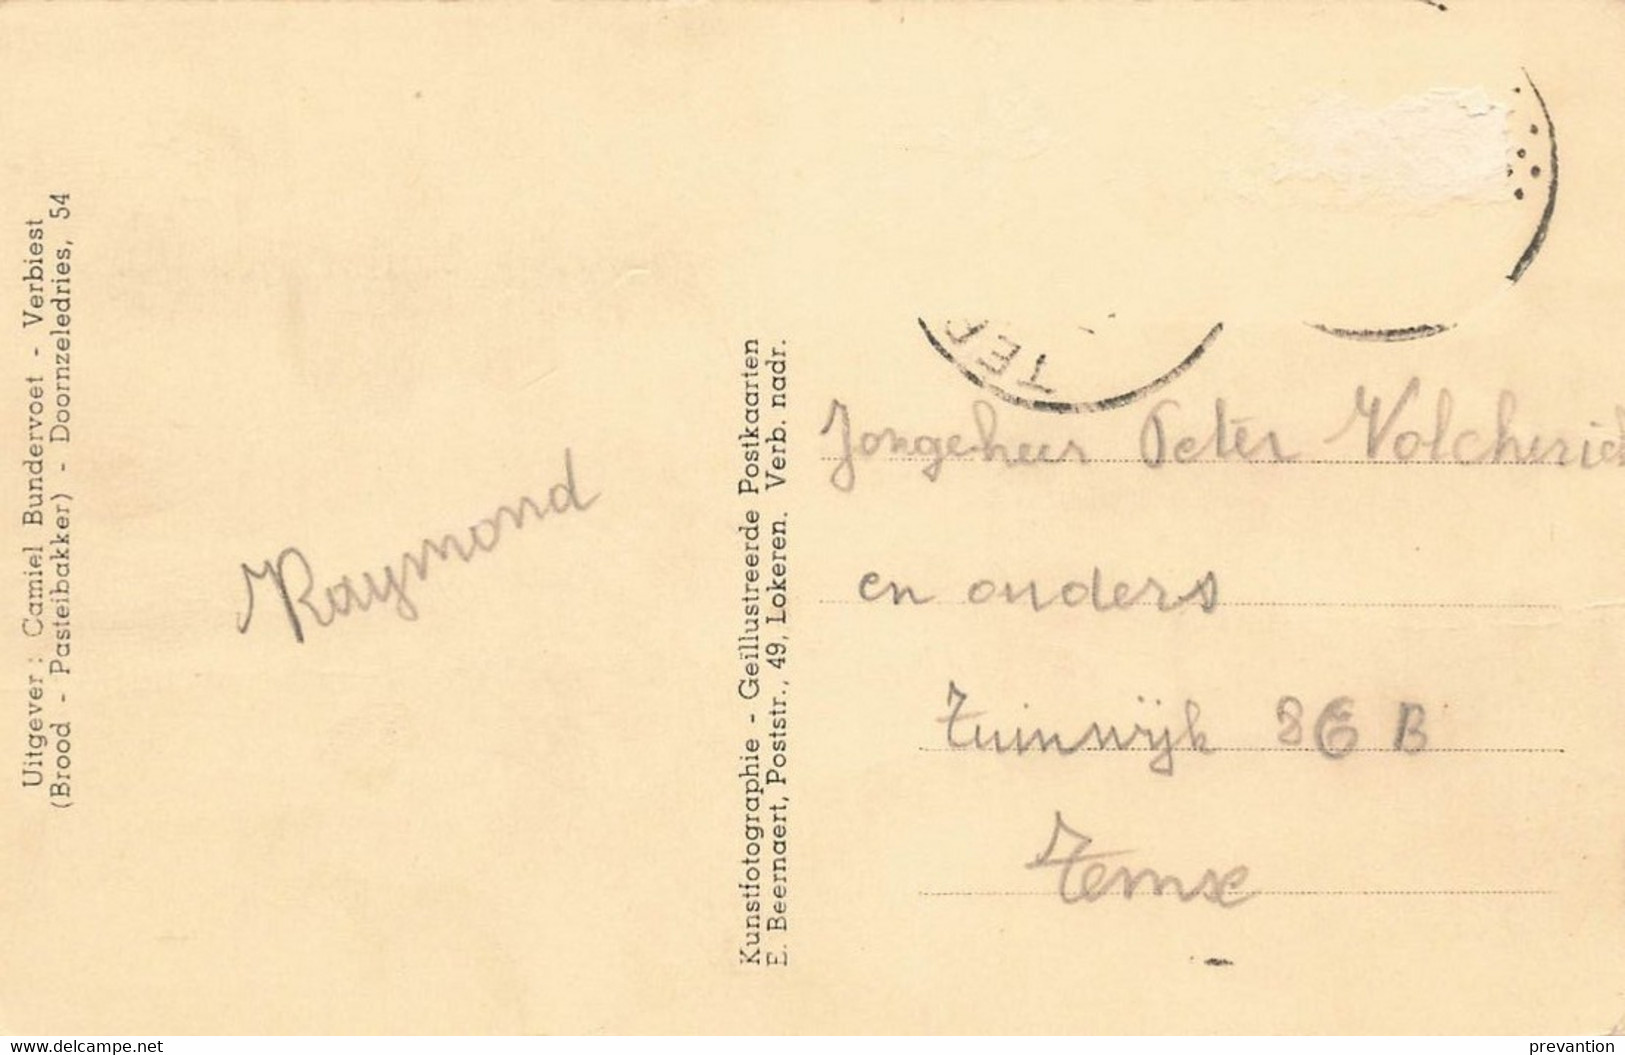 Uitgever : Camiel Bundervoet - Verbiest
(Brood - Pasteibakker) - Doornzeledries, 54
Raymond
Kunstfotographie - Geïllustreerde Postkaarten
E. Beernaert, Poststr., 49, Lokeren. Verb. nadr.
TE
Jongeheer Peter
en ouders
Tuinwijk 86 B
Temse
www.delcampe.net
prevantion